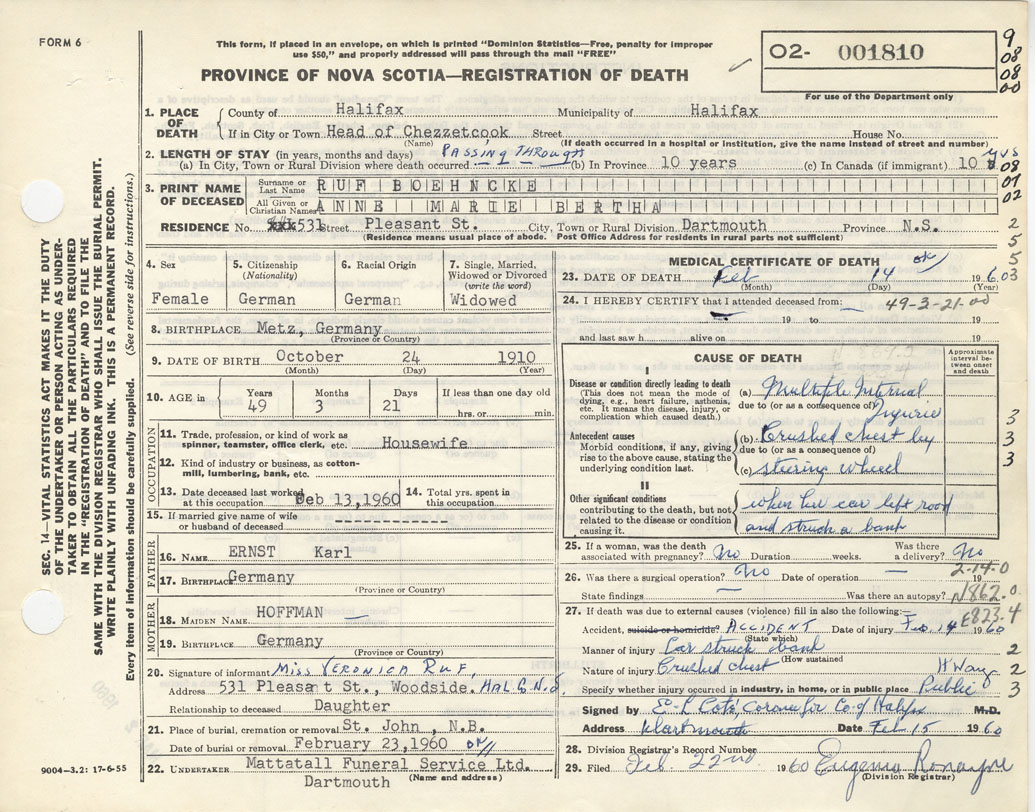 FORM 6
This form, if placed in an envelope, on which is printed "Dominion Statistics—Free, penalty for improper
use $50," and properly addressed will pass through the mail "FREE"
PROVINCE OF NOVA SCOTIA—REGISTRATION OF DEATH
O2- 001810
For use of the Department only
9
08
08
00
SEC. 14—VITAL STATISTICS ACT MAKES IT THE DUTY
OF THE UNDERTAKER OR PERSON ACTING AS UNDER-
TAKER TO OBTAIN ALL THE PARTICULARS REQUIRED
IN THE "REGISTRATION OF DEATH" AND TO FILE THE
SAME WITH THE DIVISION REGISTRAR WHO SHALL ISSUE THE BURIAL PERMIT.
WRITE PLAINLY WITH UNFADING INK. THIS IS A PERMANENT RECORD.
Every item of information should be carefully supplied. (See reverse side for instructions.)
1. PLACE OF DEATH
County of Halifax Municipality of Halifax
If in City or Town Head of Chezzetcook Street House No.
(Name) (If death occurred in a hospital or institution, give the name instead of street and number)
2. LENGTH OF STAY (in years, months and days) PASSING THROUGH yrs
(a) In City, Town or Rural Division where death occurred (b) In Province 10 years (c) In Canada (if immigrant) 10
08
3. PRINT NAME OF DECEASED
Surname or Last Name RUF BOEHNCKE
All Given or Christian Names ANNE MARIE BERTHA
02
RESIDENCE No. xxx 531 Street Pleasant St. City, Town or Rural Division Dartmouth Province N.S.
(Residence means usual place of abode. Post Office Address for residents in rural parts not sufficient)
2
5
5
3
4. Sex
Female
5. Citizenship
(Nationality)
German
6. Racial Origin
German
7. Single, Married,
Widowed or Divorced
(write the word)
Widowed
8. BIRTHPLACE Metz, Germany
(Province or Country)
9. DATE OF BIRTH October 24 1910
(Month) (Day) (Year)
10. AGE in
Years 49
Months 3
Days 21
If less than one day
hrs. or min.
OCCUPATION
11. Trade, profession, or kind of work as
spinner, teamster, office clerk, etc. Housewife
12. Kind of industry or business, as cotton-
mill, lumbering, bank, etc.
13. Date deceased last worked
at this occupation Feb 13,1960
14. Total yrs. spent in
this occupation
15. If married give name of wife
or husband of deceased
FATHER
16. NAME ERNST Karl
17. BIRTHPLACE Germany
(Province or Country)
MOTHER
18. MAIDEN NAME HOFFMAN
19. BIRTHPLACE Germany
(Province or Country)
20. Signature of informant MISS VERONICA RUF
Address 531 Pleasant St., Woodside. HAL.G.N.S.
Relationship to deceased Daughter
21. Place of burial, cremation or removal St. John , N.B.
Date of burial or removal February 23,1960
22. UNDERTAKER Mattatall Funeral Service Ltd.
Dartmouth (Name and address)
9004-3.2: 17-6-55
MEDICAL CERTIFICATE OF DEATH OK
23. DATE OF DEATH Feb 14 1960
(Month) (Day) (Year)
24. I HEREBY CERTIFY that I attended deceased from: 49-3-21-00
19 to 19
and last saw h alive on 19
CAUSE OF DEATH
Approximate interval between onset and death
I
Disease or condition directly leading to death
(This does not mean the mode of
dying, e.g., heart failure, asthenia,
etc. It means the disease, injury, or
complication which caused death.)
(a) Multiple Internal
due to (or as a consequence of) Injurie
Antecedent causes
Morbid conditions, if any, giving
rise to the above cause, stating the
underlying condition last.
(b) Crushed chest by
due to (or as a consequence of)
(c) steering wheel
II
Other significant conditions
contributing to the death, but not
related to the disease or condition
causing it.
when her car left road
and struck a bank
3
3
3
25. If a woman, was the death
associated with pregnancy? No Duration weeks. Was there
a delivery? No
26. Was there a surgical operation? No Date of operation 19
2-14-0
State findings Was there an autopsy?
N862.0
27. If death was due to external causes (violence) fill in also the following:
E823.4
Accident, suicide or homicide? ACCIDENT Date of injury Feb. 14 1960
(State which)
Manner of injury Car struck bank 2
(How sustained
Nature of injury Crushed chest 2
Specify whether injury occurred in industry, in home, or in public place Public 3
Signed by Coroner for Co of Halifx M.D.
Address Dartmouth Date Feb 15 1960
28. Division Registrar's Record Number
29. Filed Feb. 22nd 1960
(Division Registrar)